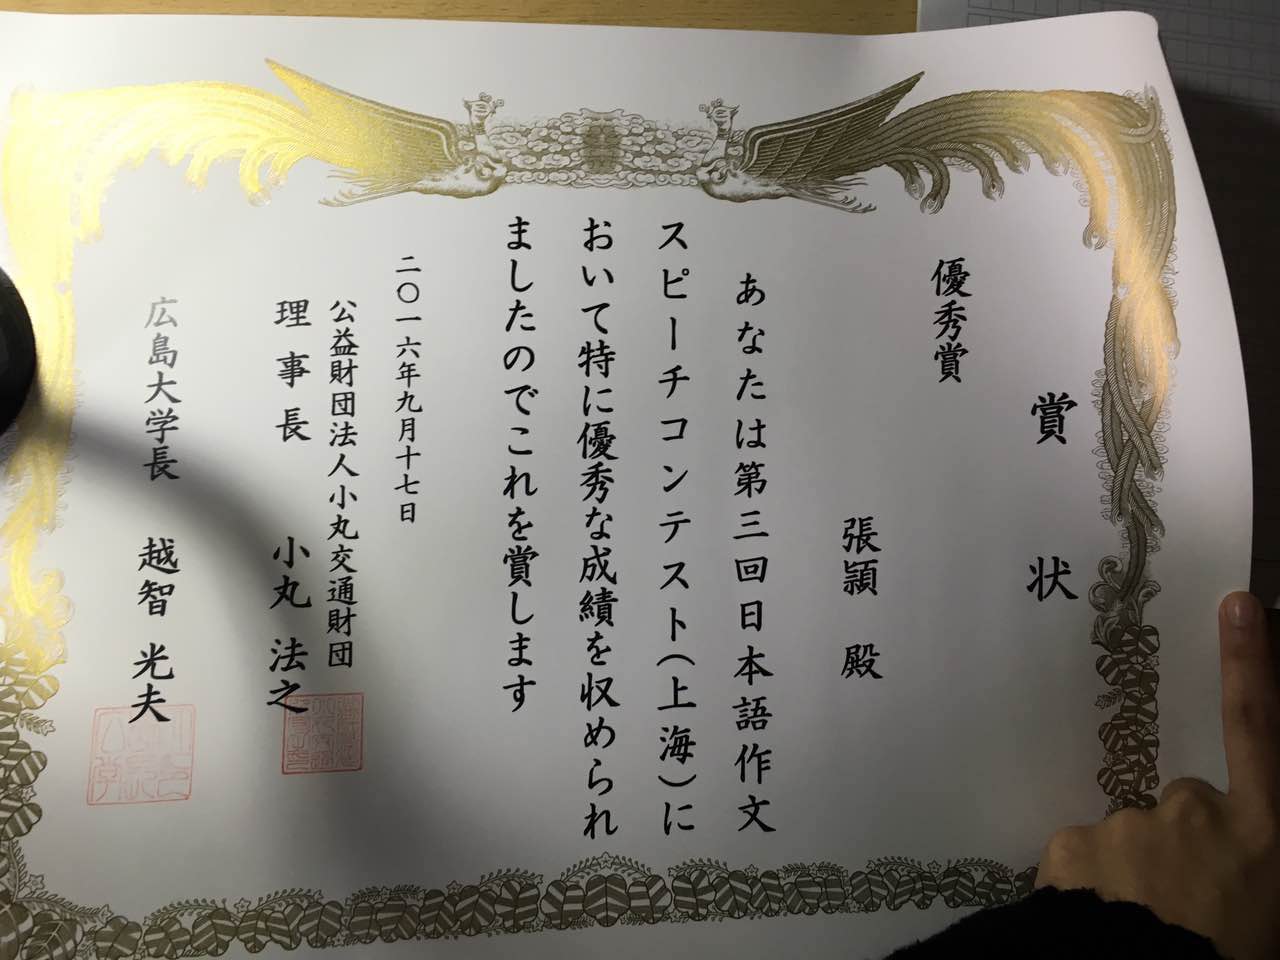 賞状
優秀賞
張頴 殿
あなたは第三回日本語作文
スピーチコンテスト(上海)に
おいて特に優秀な成績を収められ
ましたのでこれを賞します
二〇一六年九月十七日
公益財団法人小丸交通財団
理事長 小丸 法之
広島大学長 越智 光夫